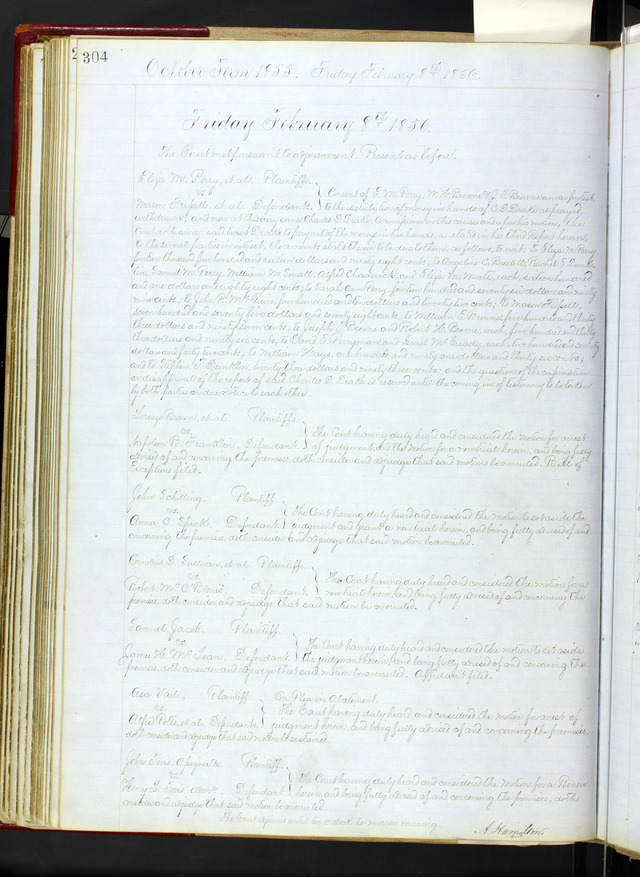 304
October Term 1855. Friday February 8th 1856.
Friday February 8th 1856.
The Court met pursuant to adjournment, Present as before.
Eliza M. Perry, et al. Plaintiffs.
vs.
Consent of E. M. Perry, W. H. Browne &
Mason Frissell, et al. Defendants. to the distribution of money in hands of C. D. Drake as prayed
withdrawn; and now at this day came Charles D. Drake, Commissioner in this cause and on his motion, the
Court doth order said Drake to pay out of the moneys in his hands, as stated in his third Report herein,
to the several parties in interest, the amounts stated therein to be due to them, as follows, to wit: To Eliza M. Perry
fourteen thousand five hundred and sixteen dollars and ninety eight cents; to Angeline C.
Samuel M. Perry, William M. Small, Alfred and Eliza each, sixteen hundred
and one dollars and eighty eight cents; to Sarah Ann Perry, fourteen hundred and seventy six dollars and seventy
nine cents; to John P. McGuire four hundred and ten dollars and twenty two cents; to Mason Frissell,
seven hundred and seventy five dollars and seventy eight cents; to William E. Browne, five hundred and thirty
three dollars and ninety seven cents; to Joseph J. Browne and Robert H. Browne, each, five hundred and thirty
three dollars and ninety six cents; to David E. Perryman and each, two hundred and seventy
dollars and forty two cents; to William Hays, one hundred and ninety one dollars and thirty six cents;
and to Stephen F. Dunklin, twenty three dollars and ninety three cents: and the question of the confirmation
or disapproval of the report of said Charles D. Drake is reserved until the coming in of testimony to be taken
by both parties on due notice to each other.
Lorenzo Brown, et al. Plaintiffs.
vs.
The Court having duly heard and considered the motion for arrest
Napoleon B. Franklin, Defendant. of judgment, and the motion for a new trial herein, and being fully
advised of and concerning the premises, doth consider and adjudge that said motions be overruled. Bill of
Exceptions filed.
John Schilling, Plaintiff.
vs.
The Court having duly heard and considered the motion to set aside the
Anna C. Speck. Defendant. judgment and grant a new trial herein, and being fully advised of and
concerning the premises, doth consider and adjudge that said motion be overruled.
Cornelius D. Sullivan, et al. Plaintiff.
vs.
The Court having duly heard and considered the motion for a
Robert McC. Defendant. new trial herein, and being fully advised of and concerning the
premises, doth consider and adjudge that said motion be overruled.
Samuel Jacob, Plaintiff.
vs.
The Court having duly heard and considered the motion to set aside
James H. McLean, Defendant. the judgment herein, and being fully advised of and concerning the
premises, doth consider and adjudge that said motion be overruled. Affidavit filed.
Asa Vail, Plaintiff. On Plea in Abatement.
vs.
The Court having duly heard and considered the motion for arrest of
Alfred Potts, et al. Defendants. judgment herein, and being fully advised of and concerning the premises,
doth consider and adjudge that said motion be sustained.
John Assignee &c. Plaintiff.
vs.
The Court having duly heard and considered the Motion for a Review
Henry L. Defendant. herein, and being fully advised of and concerning the premises, doth
consider and adjudge that said motion be overruled.
The Court adjourned until ten o'clock to-morrow morning.
A. Hamilton,